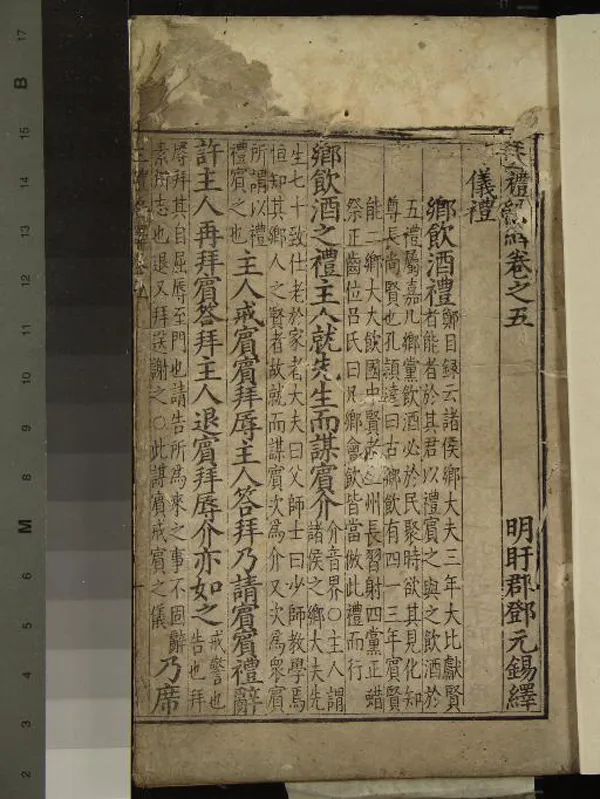 禮編繹卷之五 明盱郡鄧元錫繹
儀禮
鄉飲酒禮
鄭目録云諸侯鄉大夫三年大比獻賢
者能者於其君以禮賓之與之飲酒於
五禮屬嘉凡鄉黨飲酒必於民聚時欲其見化知
尊長尚賢也孔頴達曰古鄉飲有四一三年賓賢
能二鄉大夫飲國中賢者三州長習射四黨正蜡
祭正齒位呂氏曰凡鄉會飲皆當倣此禮而行
鄉飲酒之禮主人就先生而謀賓介
介音界○主人謂
諸侯之鄉大夫先
生七十致仕老於家老大夫曰父師士曰少師教學焉
恒知其鄉人之賢者故就而謀賓次為介又次為衆賓
所謂以禮
禮賓之也
主人戒賓賓拜辱主人答拜乃請賓賓禮辭
許主人再拜賓答拜主人退賓拜辱介亦如之
戒警也
告也拜
辱拜其自屈辱至門也請告所為來之事不固辭
素所志也退又拜送謝之○此謀賓戒賓之儀
乃席
17
B
15
14
13
12
11
10
9
8
M
6
5
4
3
2